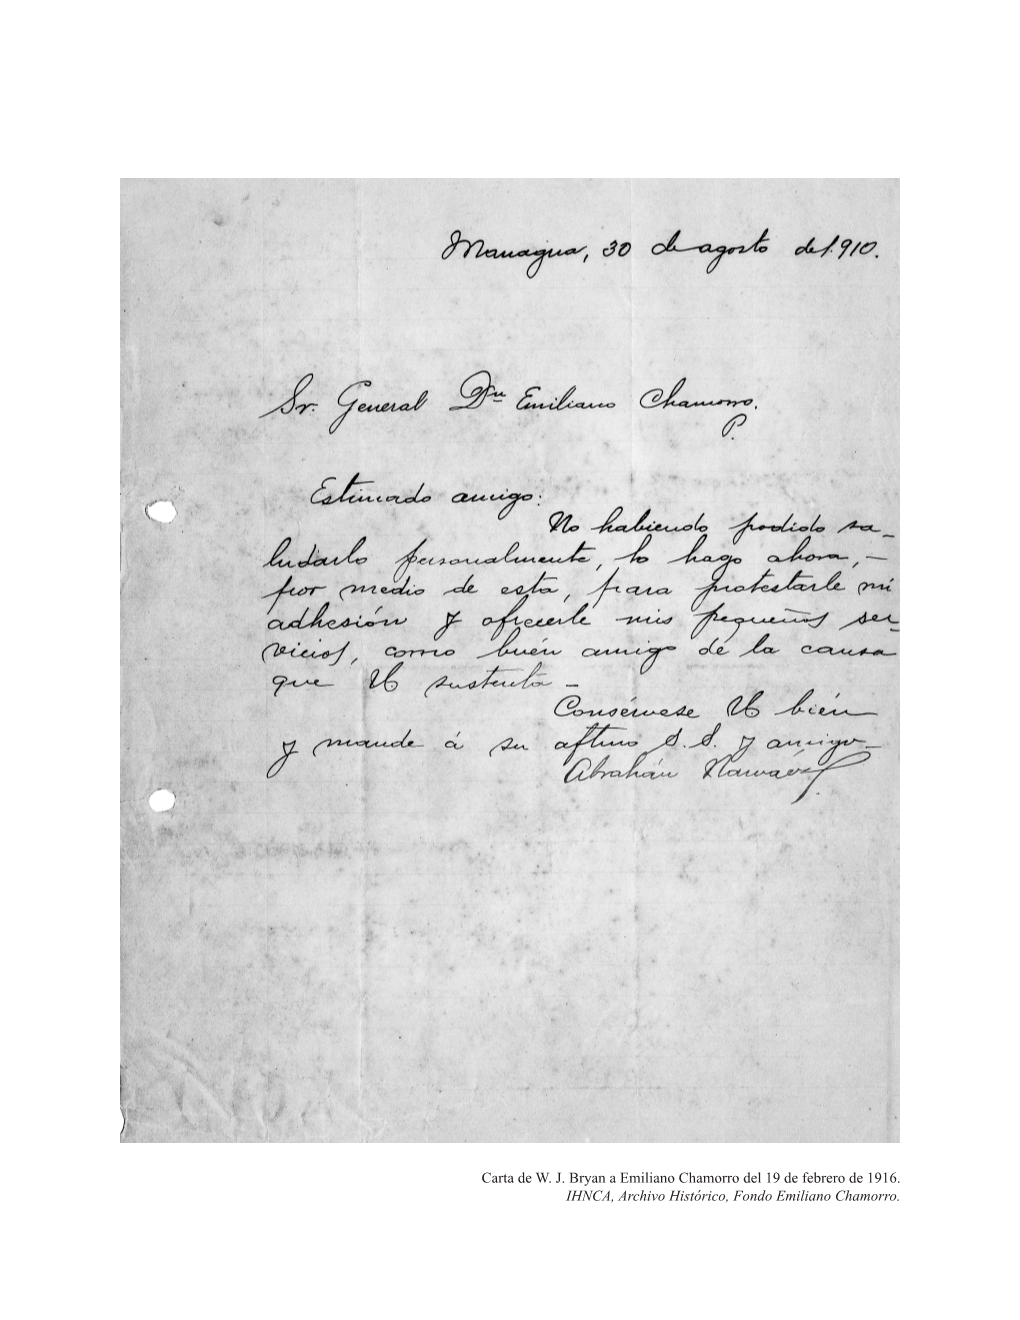 Managua, 30 de agosto de 1.910.
Sr. General Dn Emiliano Chamorro.
P.
Estimado amigo:
No habiendo podido sa-
ludarlo personalmente, lo hago ahora, -
por medio de esta, para protestarle mi
adhesión y ofrecerle mis pequeños ser-
vicios, como buén amigo de la causa
que U sustenta -
Consérvese U bién
y mande á su aftmo S. S. y amigo -
Abrahán Narváez
Carta de W. J. Bryan a Emiliano Chamorro del 19 de febrero de 1916.
IHNCA, Archivo Histórico, Fondo Emiliano Chamorro.